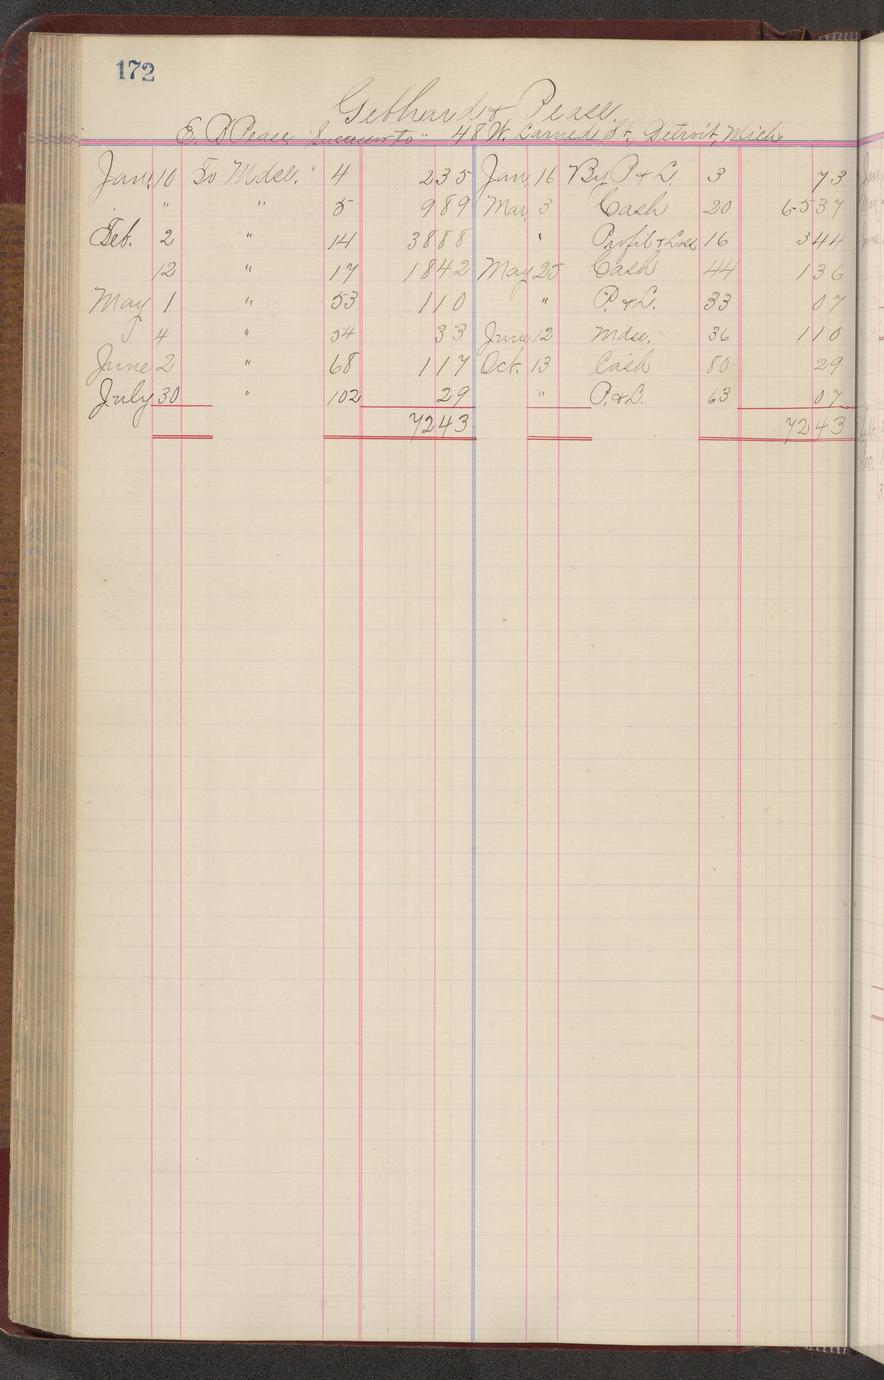 172
Gebhard & Pease.
E. D. Pease Successor to " 48 W. Larned St., Detroit, Mich
Jan. 10 To Mdse. 4 235 Jan. 16 By P. & L. 3 73
" " 5 989 Mar. 3 Cash 20 6537
Feb. 2 " 14 3888 " Profit & Loss 16 344
12 " 17 1842 May 25 Cash 44 136
May 1 " 53 110 " P. & L. 33 07
4 " 54 33 June 12 Mdse. 36 110
June 2 " 68 117 Oct. 13 Cash 80 29
July 30 " 102 29 " P. & L. 63 07
7243 7243